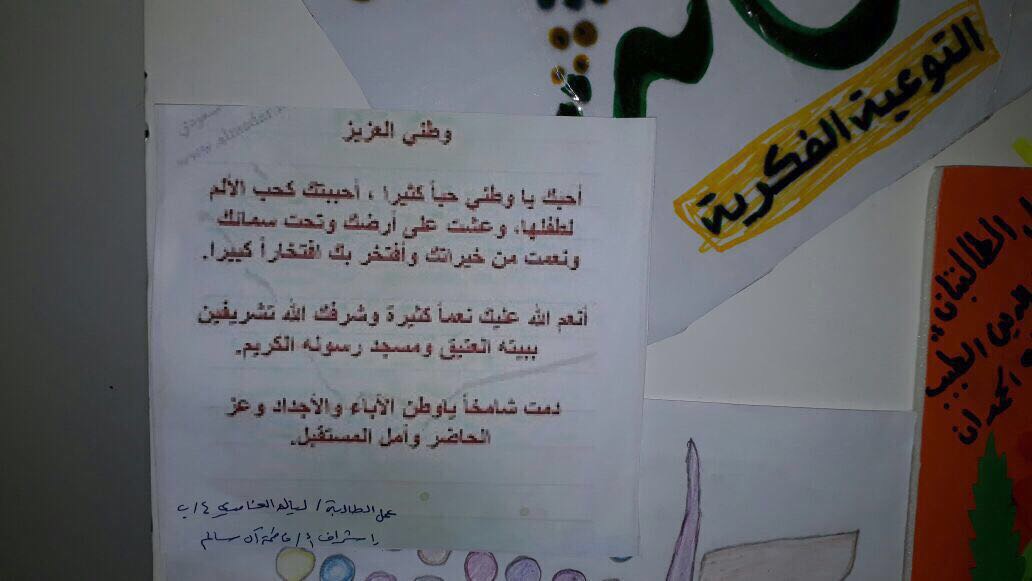 التوعية الفكرية
وطني العزيز
أحبك يا وطني حباً كثيرا ، أحببتك كحب الألم
لطفلها، وعشت على أرضك وتحت سمائك
ونعمت من خيراتك وأفتخر بك افتخاراً كبيرا.
أنعم الله عليك نعماً كثيرة وشرفك الله تشريفين
ببيته العتيق ومسجد رسوله الكريم.
دمت شامخاً ياوطن الأباء والأجداد وعز
الحاضر وأمل المستقبل.
عمل الطالبة / ليالي ٤/ب
إشراف أ/ فاطمة آل سالم
الطالبتان:
الدين الطيب
الحمدان